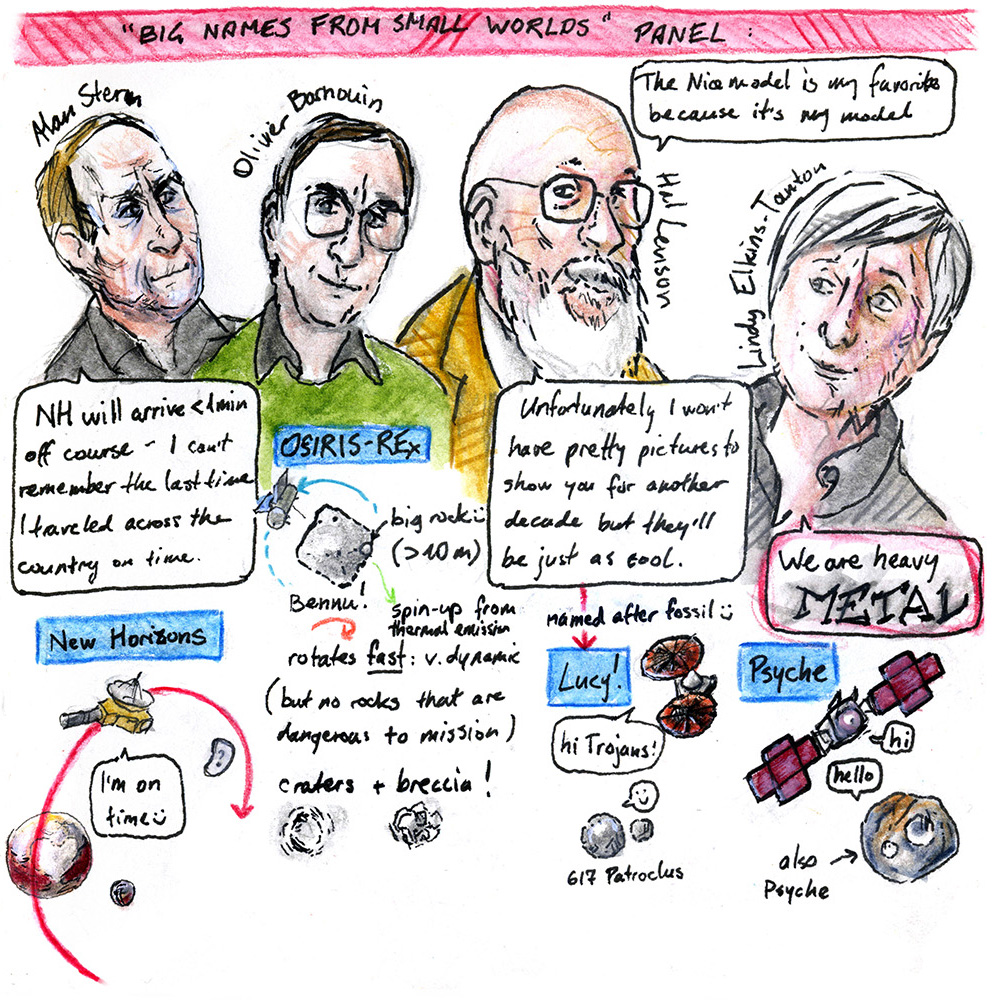 "BIG NAMES FROM SMALL WORLDS" PANEL :
Alan Stern
Oliver Barnouin
The Nice model is my favorite
because it's my model
Hal Levison
Lindy Elkins-Tanton
NH will arrive <1min
off course - I can't
remember the last time
I traveled across the
country on time.
New Horizons
I'm on
time
OSIRIS-REx
big rock
(>10m)
Bennu!
spin-up from
thermal emission
rotates fast: v. dynamic
(but no rocks that are
dangerous to mission)
craters + breccia!
Unfortunately I won't
have pretty pictures to
show you for another
decade but they'll
be just as cool.
named after fossil
Lucy!
hi Trojans!
617 Patroclus
We are heavy
METAL
Psyche
hi
hello
also
Psyche